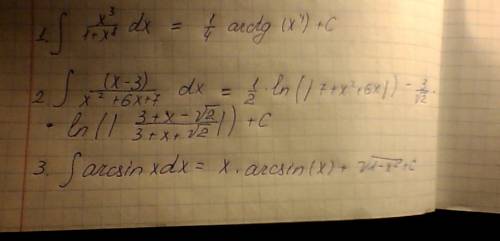 1. ∫ x³/(1+x⁸) dx = 1/4 arctg (x⁴) + C
2 ∫ (x-3)/(x²+6x+7) dx = 1/2 · ln(|7+x²+6x|) - 3/√2 ·
· ln(| (3+x-√2)/(3+x+√2) |) + C
3. ∫ arcsin x dx = x · arcsin(x) + √(1-x²) + C